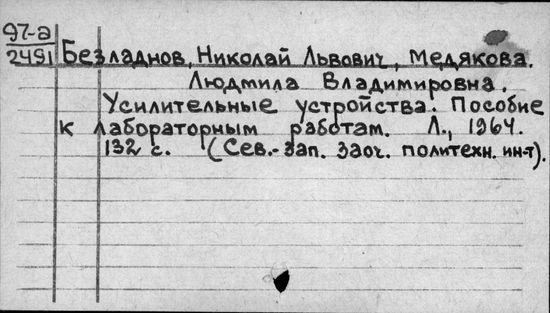 97-а
2491
Безладнов, Николай Львович, Медякова,
Людмила Владимировна.
Усилительные устройства. Пособие
к лабораторным работам. Л., 1964.
132 с. (Сев.-зап. заоч. политехн. ин-т).